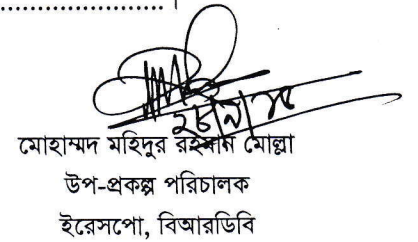 মোহাম্মদ মহিদুর রহমান মোল্লা
উপ-প্রকল্প পরিচালক
ইরেসপো, বিআরডিবি